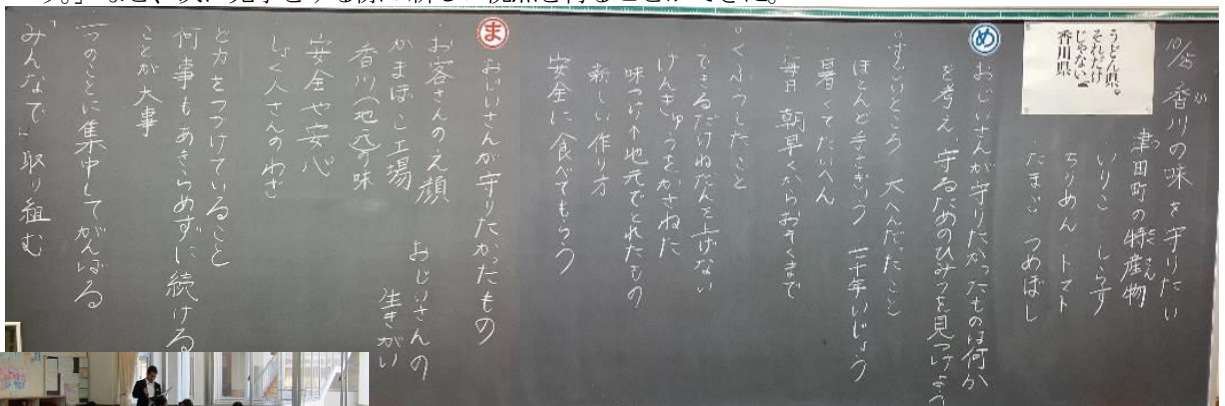 10/25 香川の味を守りたい
津田町の特産物
いりこ しらす
ちりめん トマト
たまご つめぼし
うどん県。
それだけ
じゃない
香川県
め おじいさんが守りたかったものは何か
を考え、守るためのひみつを見つけよう
すごいところ 大へんだったこと
ほとんど手さぎょう 三十年いじょう
暑くてたいへん
毎日 朝早くからおそくまで
くふうしたこと
できるだけねだんを上げない
けんきゅうをかさねた
味つけ↑地元でとれたもの
新しい作り方
安全に食べてもらう
ま おじいさんが守りたかったもの
お客さんのえ顔 おじいさんの
かまぼこ工場 生きがい
香川(地いき)の味
安全や安心
しょく人さんのわざ
ど力をつづけていること
何事もあきらめずに続ける
ことが大事
一つのことに集中してがんばる
みんなで、取り組む